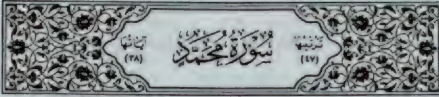 ترتيبها
(٤٧)
سُورَةُ مُحَمَّدٍ
آياتها
(٣٨)